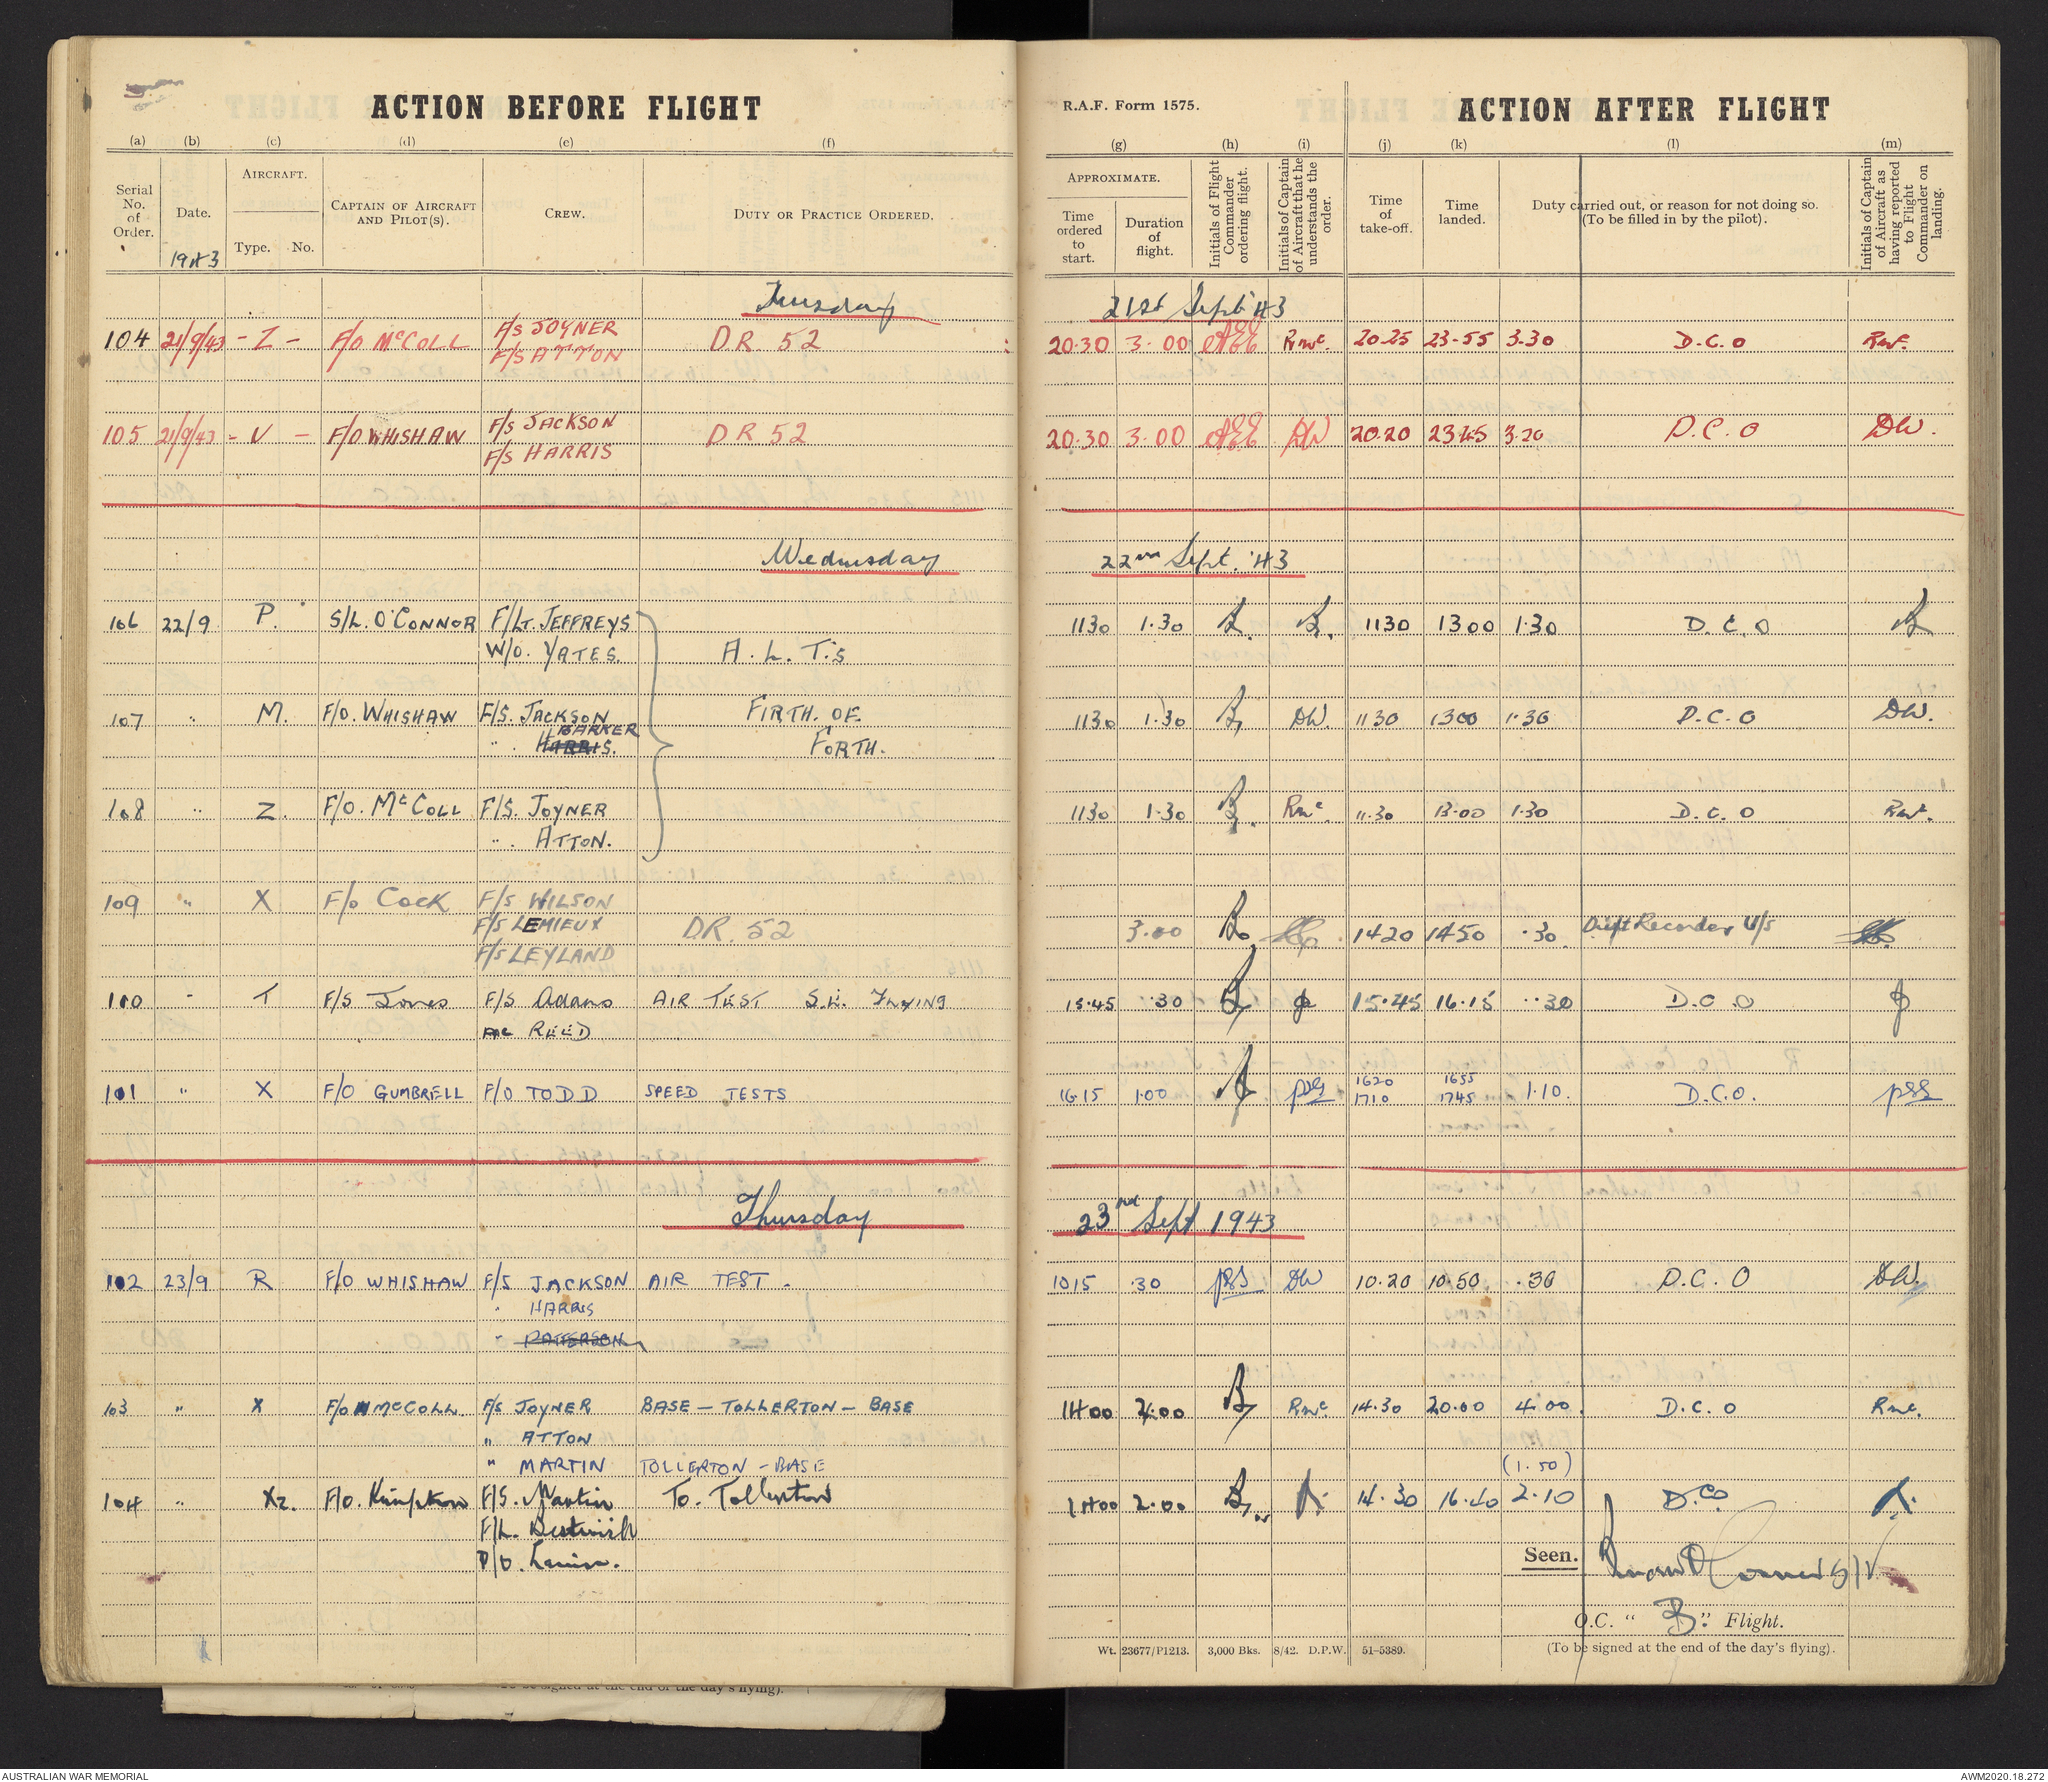 ACTION BEFORE FLIGHT
R.A.F. Form 1575. ACTION AFTER FLIGHT
(a) (b) (c) (d) (e) (f) (g) (h) (i) (j) (k) (l) (m)
Serial No. of Order. Date. 1943 AIRCRAFT. Type. No. CAPTAIN OF AIRCRAFT AND PILOT(S). CREW. DUTY OR PRACTICE ORDERED. APPROXIMATE. Time ordered to start. Duration of flight. Initials of Flight Commander ordering flight. Initials of Captain of Aircraft that he understands the order. Time of take-off. Time landed. Duty carried out, or reason for not doing so. (To be filled in by the pilot). Initials of Captain of Aircraft as having reported to Flight Commander on landing.
Tuesday 21st Sept '43
104 21/9/43 - Z - F/O McCOLL F/S JOYNER DR. 52 20.30 3.00 RMc. 20.25 23.55 3.30 D.C.O RMc.
F/S ATTON
105 21/9/43 - V - F/O WHISHAW F/S JACKSON DR 52 20.30 3.00 DW 20.20 23.45 3.20 D.C.O DW.
F/S HARRIS
Wednesday 22nd Sept. '43
106 22/9 P. S/L. O'CONNOR F/LT. JEFFREYS 1130 1.30 1130 1300 1.30 D.C.O
W/O. YATES. A.L.T.'s
107 " M. F/O. WHISHAW F/S. JACKSON FIRTH. OF. 1130 1.30 DW. 1130 1300 1.30 D.C.O DW.
BARKER
" . HARRIS. FORTH.
108 " Z. F/O. McCOLL F/S. JOYNER 1130 1.30 RMc. 11.30 13.00 1.30 D.C.O RMc.
" . ATTON.
109 " X F/O COCK F/S WILSON
F/S LEMIEUX DR. 52 3.00 1420 1450 .30. Drift Recorder U/S
F/S LEYLAND
110 " T F/S Jones F/S Adams AIR TEST S.E. FLYING 15.45 .30 15.45 16.15 .30 D.C.O
REED
101 " X F/O GUMBRELL F/O TODD SPEED TESTS 1615 1.00 1620 1655 1.10. D.C.O.
1710 1745
Thursday 23rd Sept 1943
102 23/9 R F/O WHISHAW F/S JACKSON AIR TEST. 1015 .30 DW 10.20 10.50 .30 D.C.O DW.
" HARRIS
" PATTERSON
103 " X F/O McCOLL. F/S JOYNER BASE - TOLLERTON - BASE 1400 2.00 RMc. 14.30 20.00 4.00. D.C.O RMc.
" ATTON
" MARTIN TOLLERTON - BASE (1.50)
104 " X2. F/O. Kimpton F/S. Martin To. Tollerton 1400 2.00 14.30 16.40 2.10 D.C.O
F/L.
P/O.
Seen.
O.C. " B." Flight.
(To be signed at the end of the day's flying).
Wt. 23677/P1213. 3,000 Bks. 8/42. D.P.W. 51-5389.
AUSTRALIAN WAR MEMORIAL AWM2020.18.272